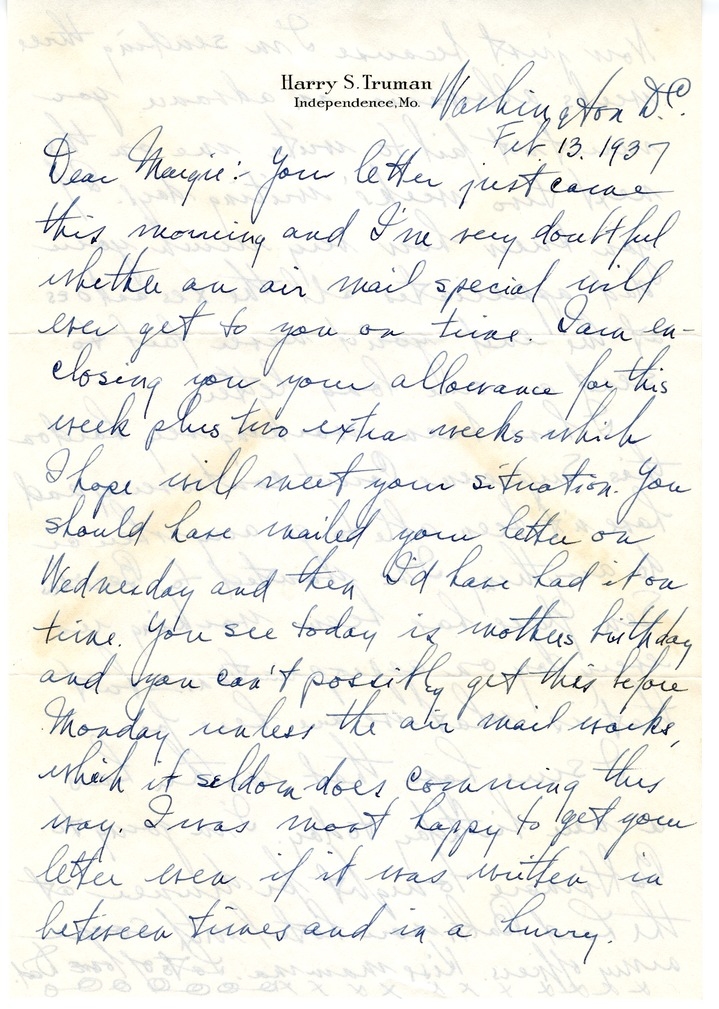 Harry S. Truman
Independence, Mo.
Washington D.C.
Feb 13. 1937
Dear Margie:- Your letter just came
this morning and I've very doubtful
whether an air mail special will
ever get to you on time. I am en-
closing you your allowance for this
week plus two extra weeks which
I hope will meet your situation. You
should have mailed your letter on
Wednesday and then I'd have had it on
time. You see today is mothers birthday
and you can't possibly get this before
Monday unless the air mail works,
which it seldom does comming this
way. I was most happy to get your
letter even if it was written in
between times and in a hurry.